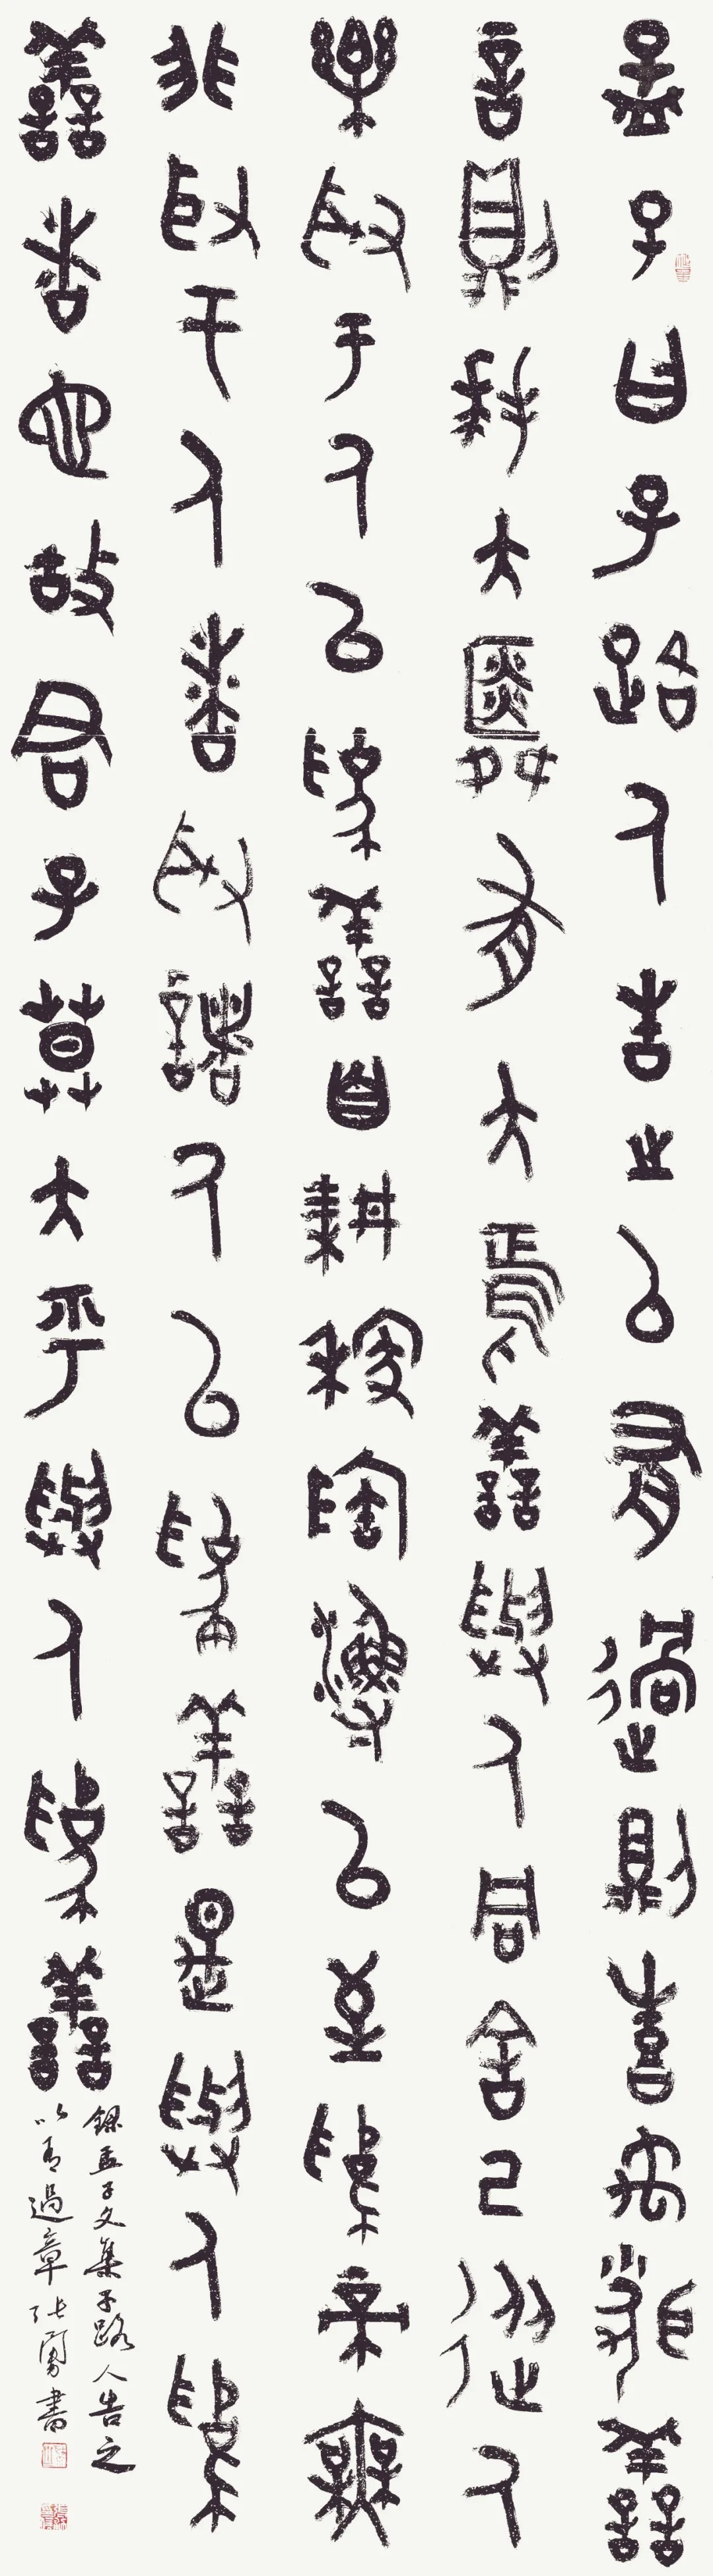 孟子曰子路人告之以有過則喜禹聞善
言則拜大舜有大焉善與人同舍己從人
樂取于人以為善自耕稼陶漁以至為帝無
非取于人者取諸人以為善是與人為
善者也故君子莫大乎與人為善
錄孟子文集子路人告之
以有過章張勇書